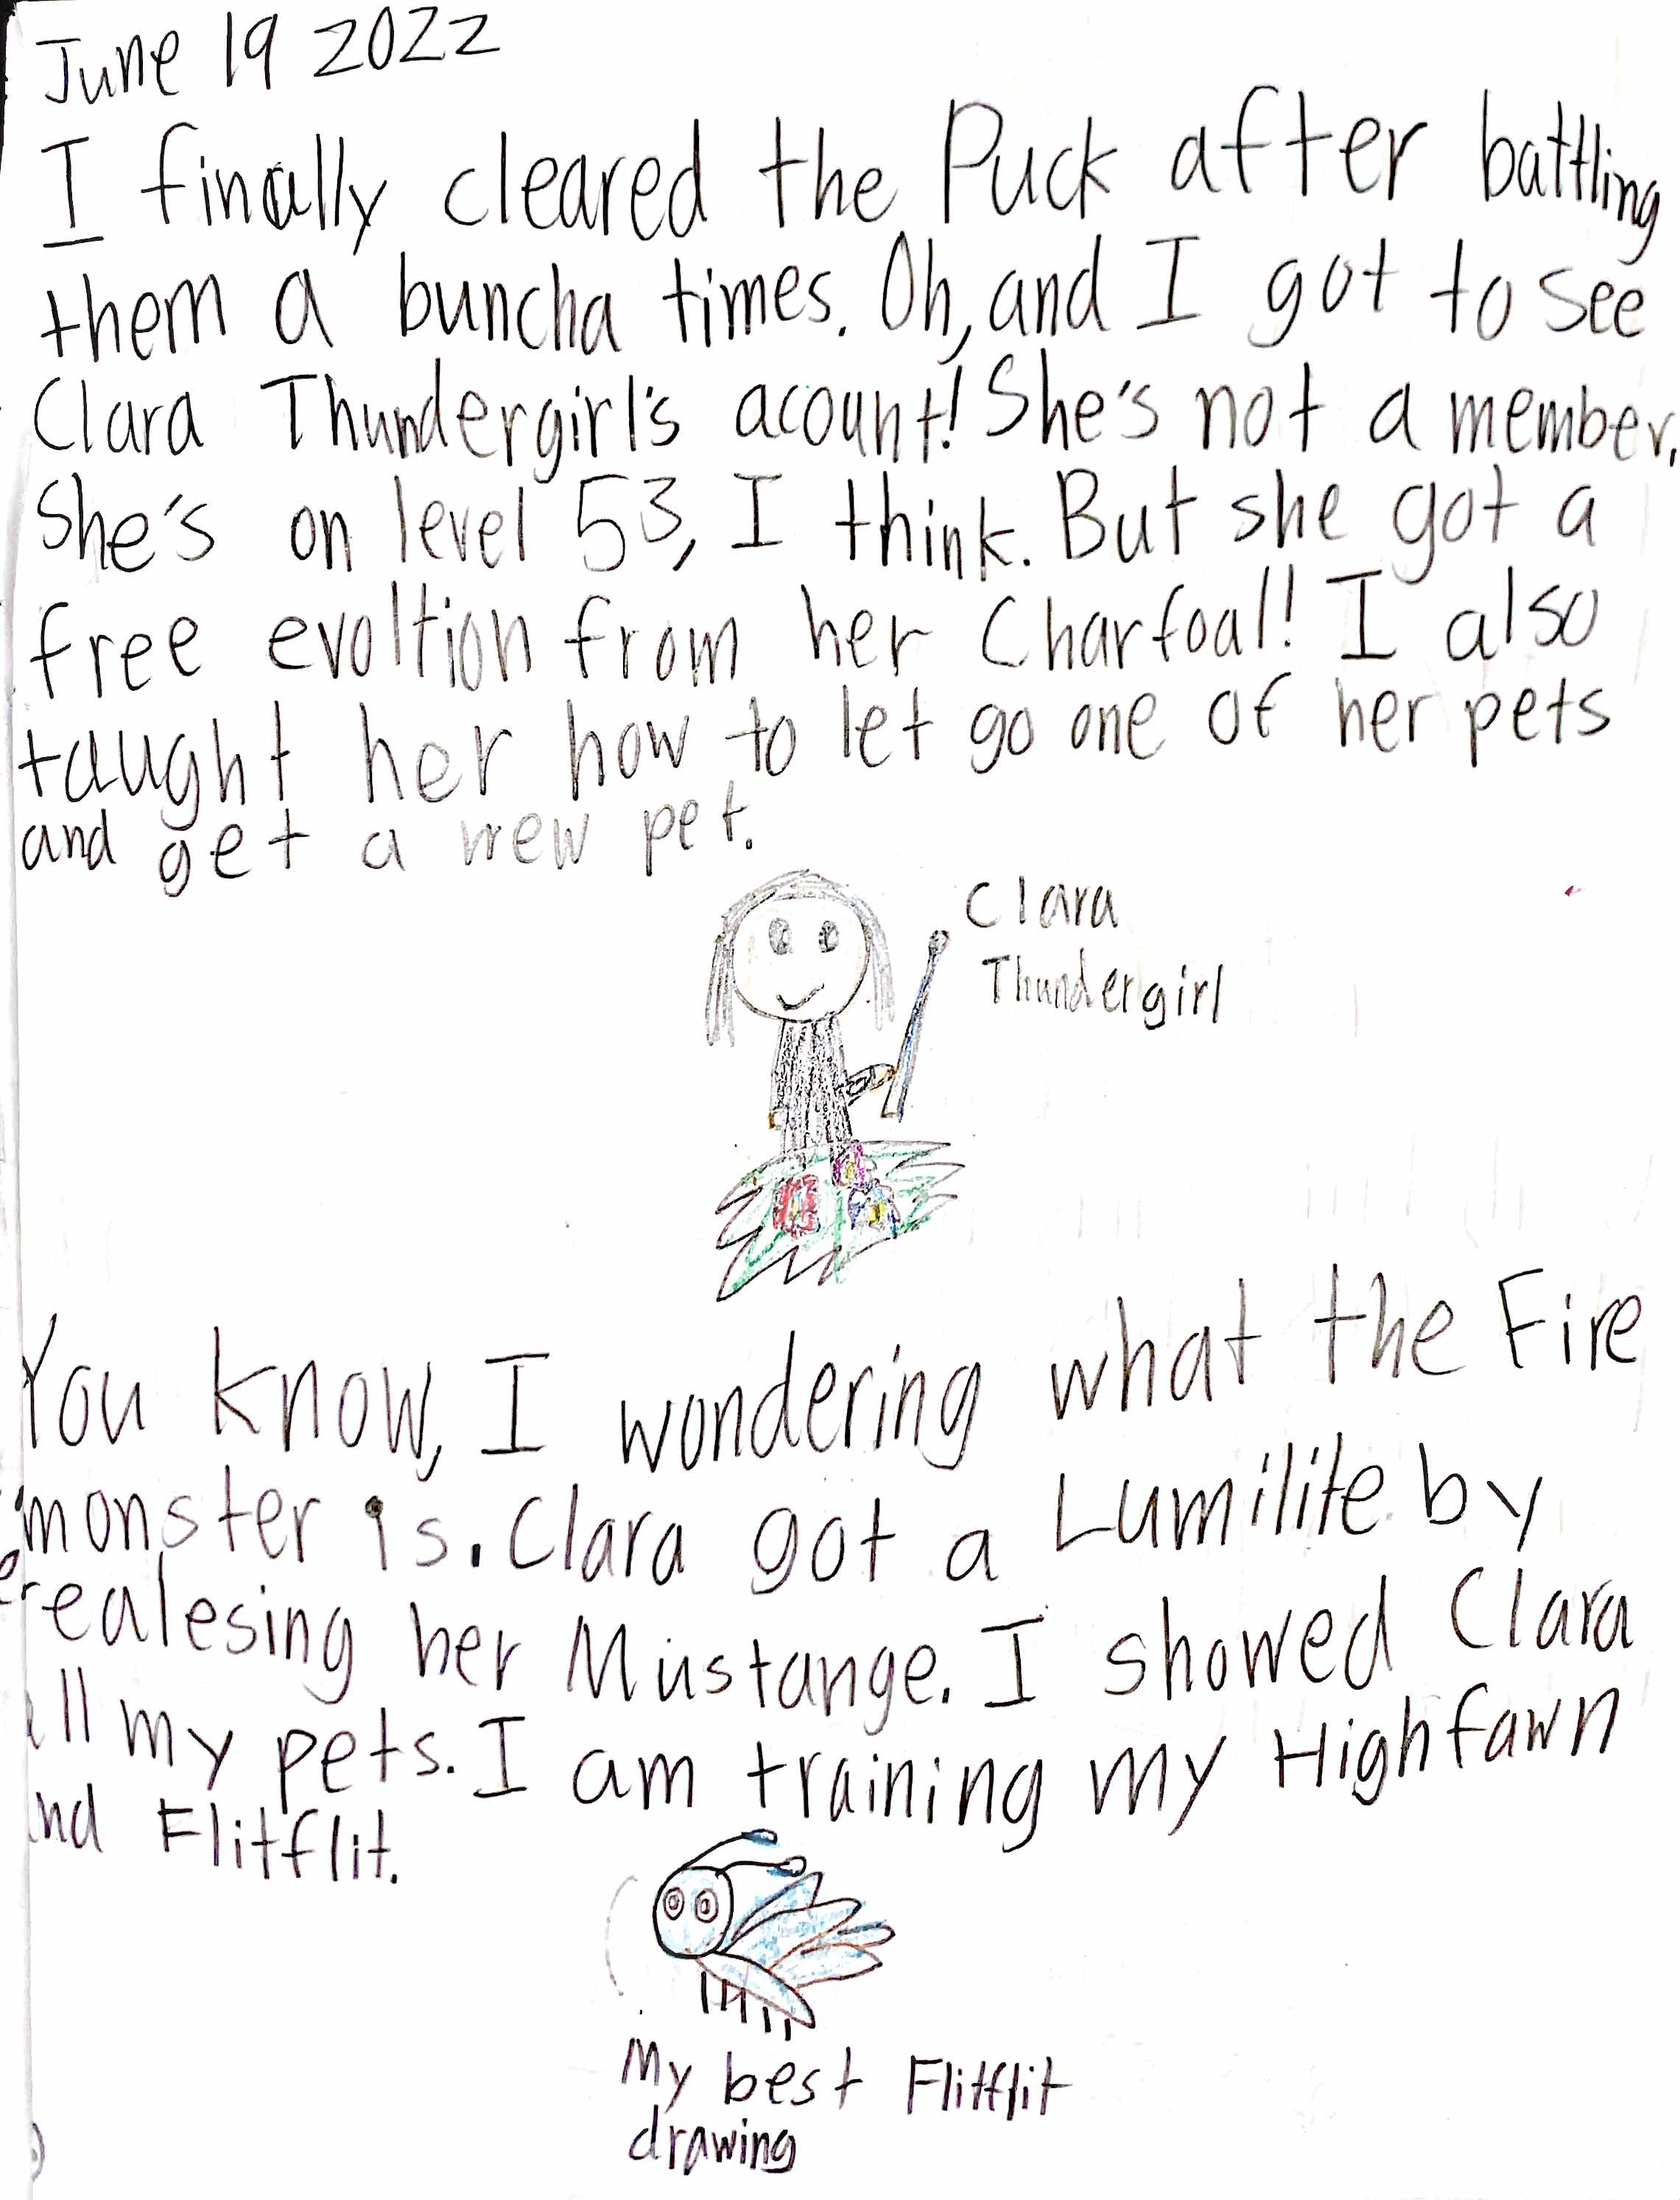 June 19 2022
I finally cleared the Puck after battling
them a buncha times. Oh, and I got to see
Clara Thundergirl's acount! She's not a member.
She's on level 53, I think. But she got a
free evoltion from her Charfoal! I also
taught her how to let go one of her pets
and get a new pet.
Clara
Thundergirl
You know, I wondering what the Fire
monster is. Clara got a Lumilite by
realesing her Mustange. I showed Clara
all my pets. I am training my Highfawn
and Flitflit.
My best Flitflit
drawing